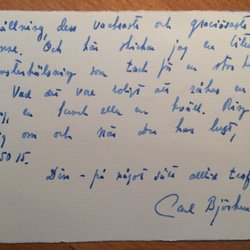 ällning, dess vackraste och graciösaste
nne. Och här skickar jag en lite
nsterhälsning som tack för en stor
Vad det var roligt att råkas en
en lunch eller en kväll. Ring
ig om och när Du har lust,
50 15.
Din – på något sätt alltid
Carl Björkm